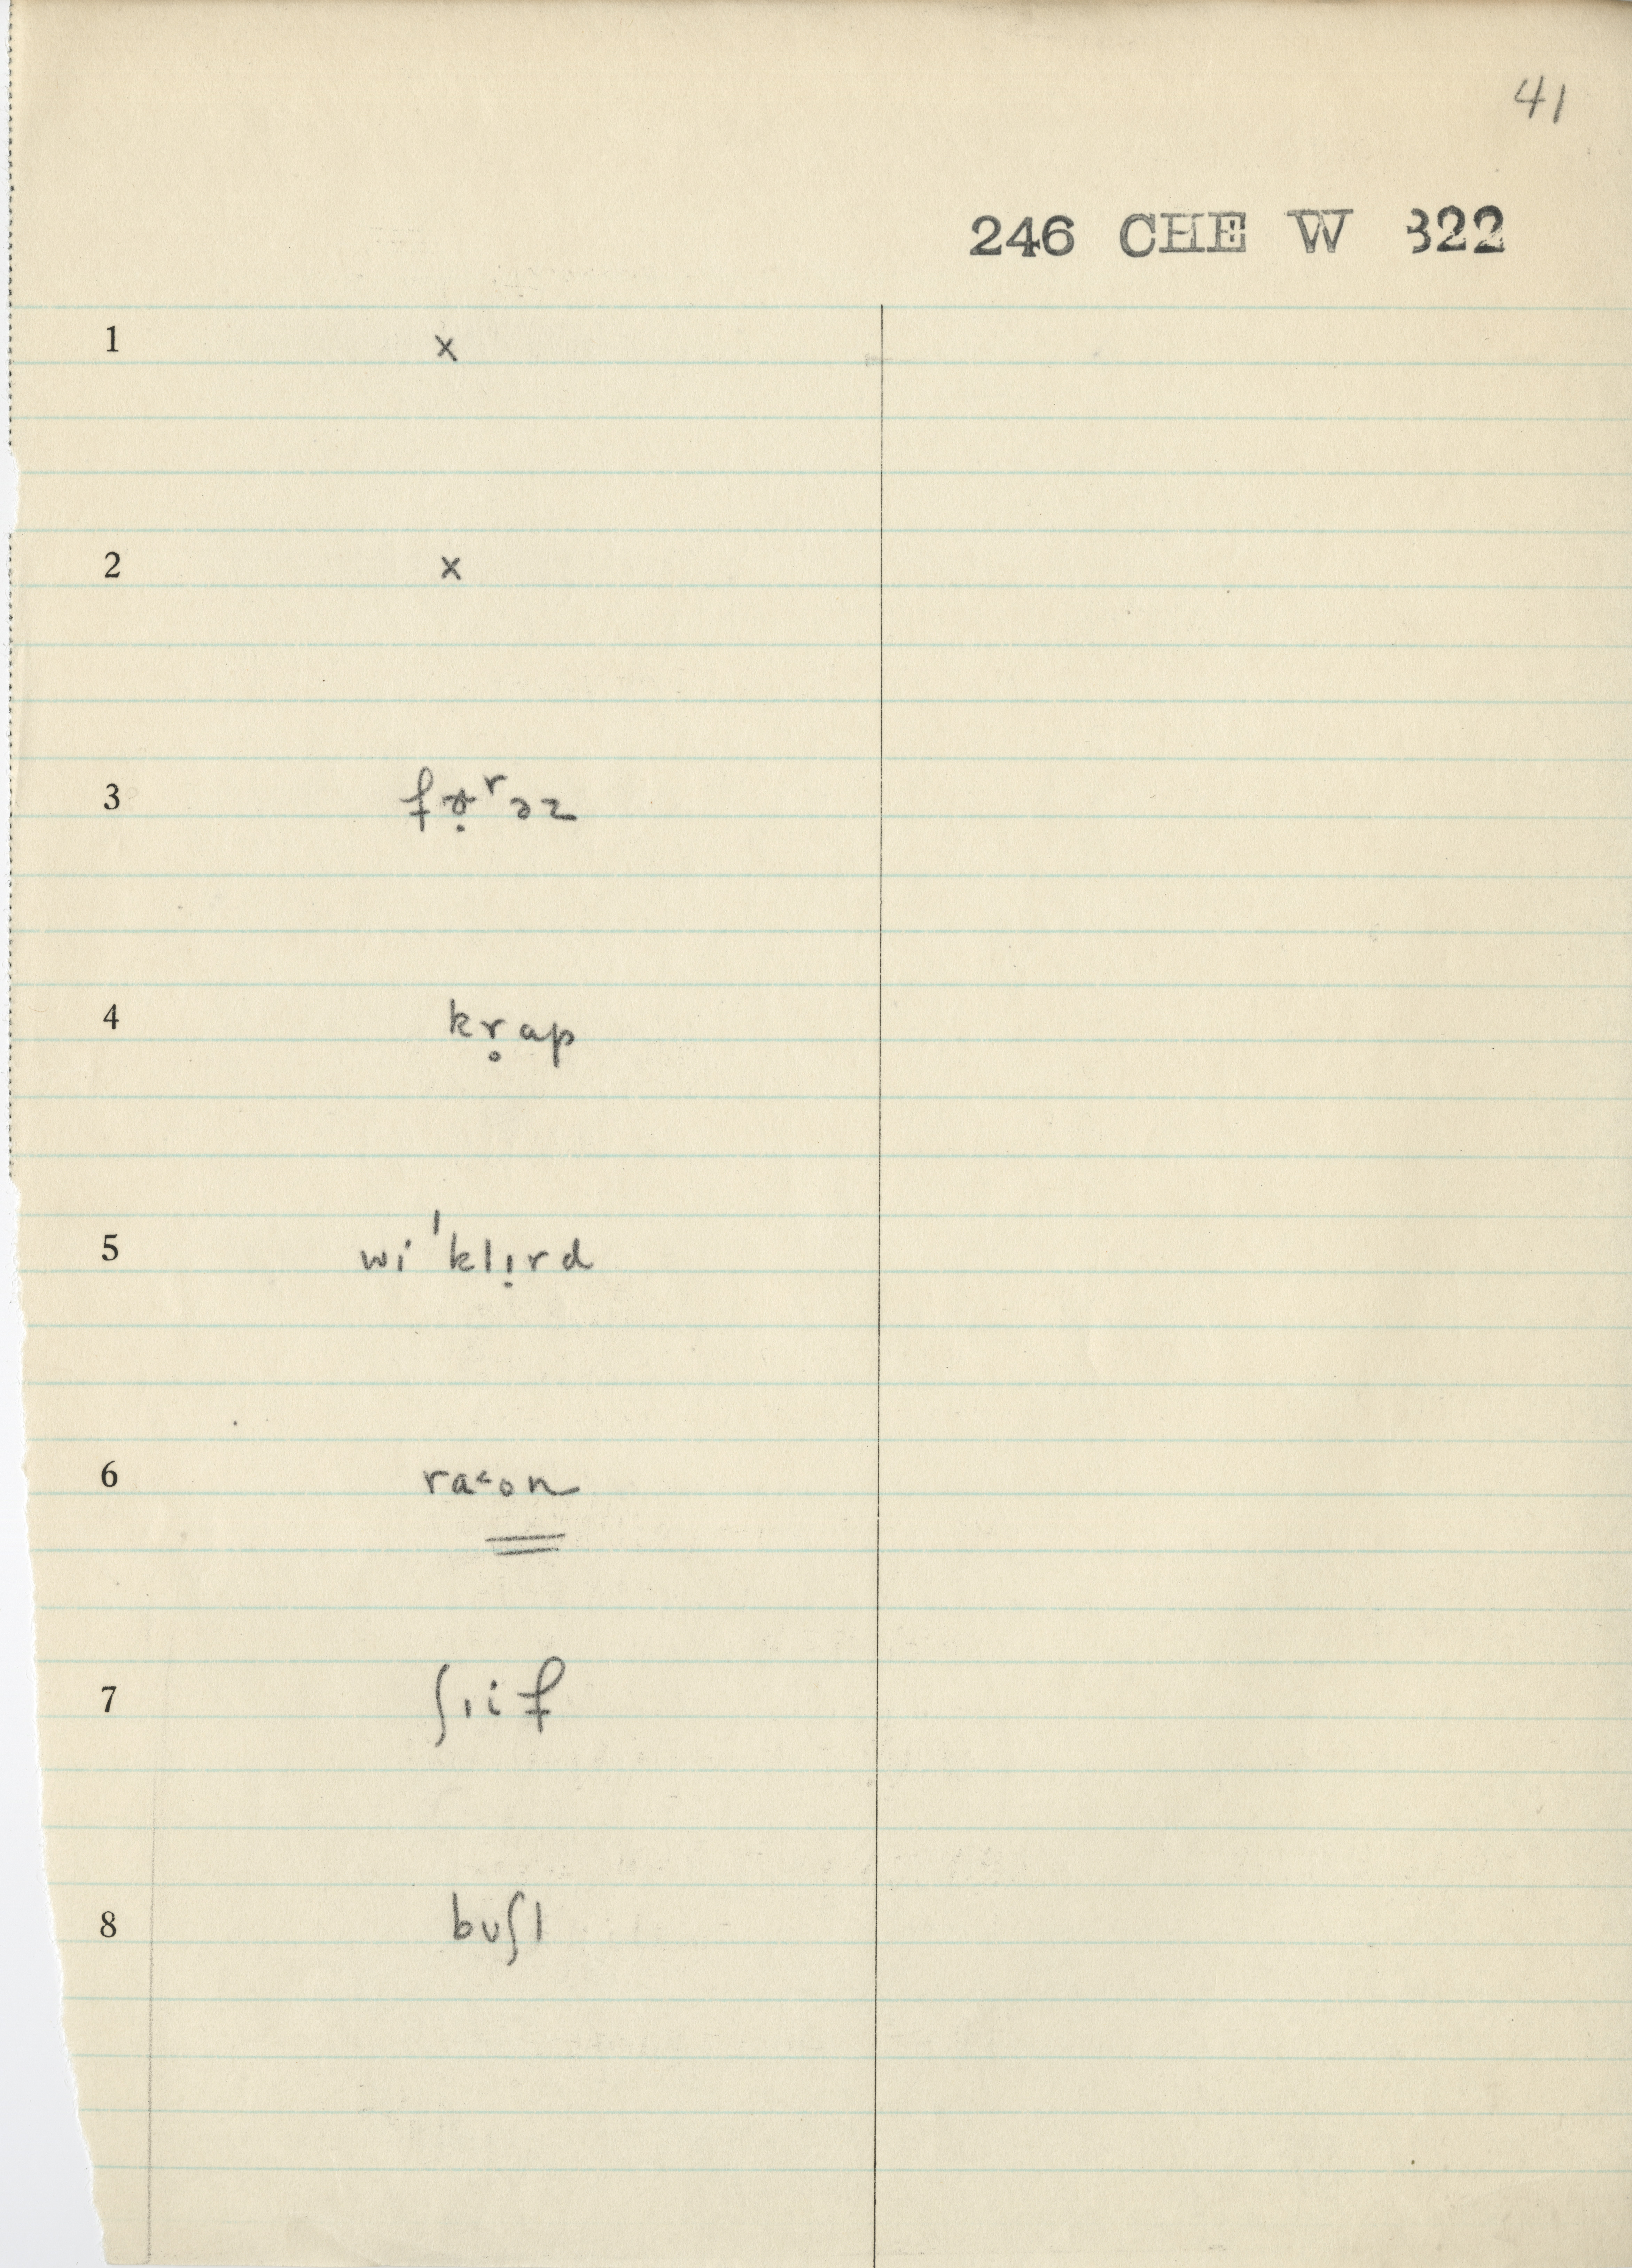 41
246 CHE W 322
1 x
2 x
3
4 kr̥ap
5 wi'klι̣rd
6 ra˂on
7 ʃιif
8 bʋʃl